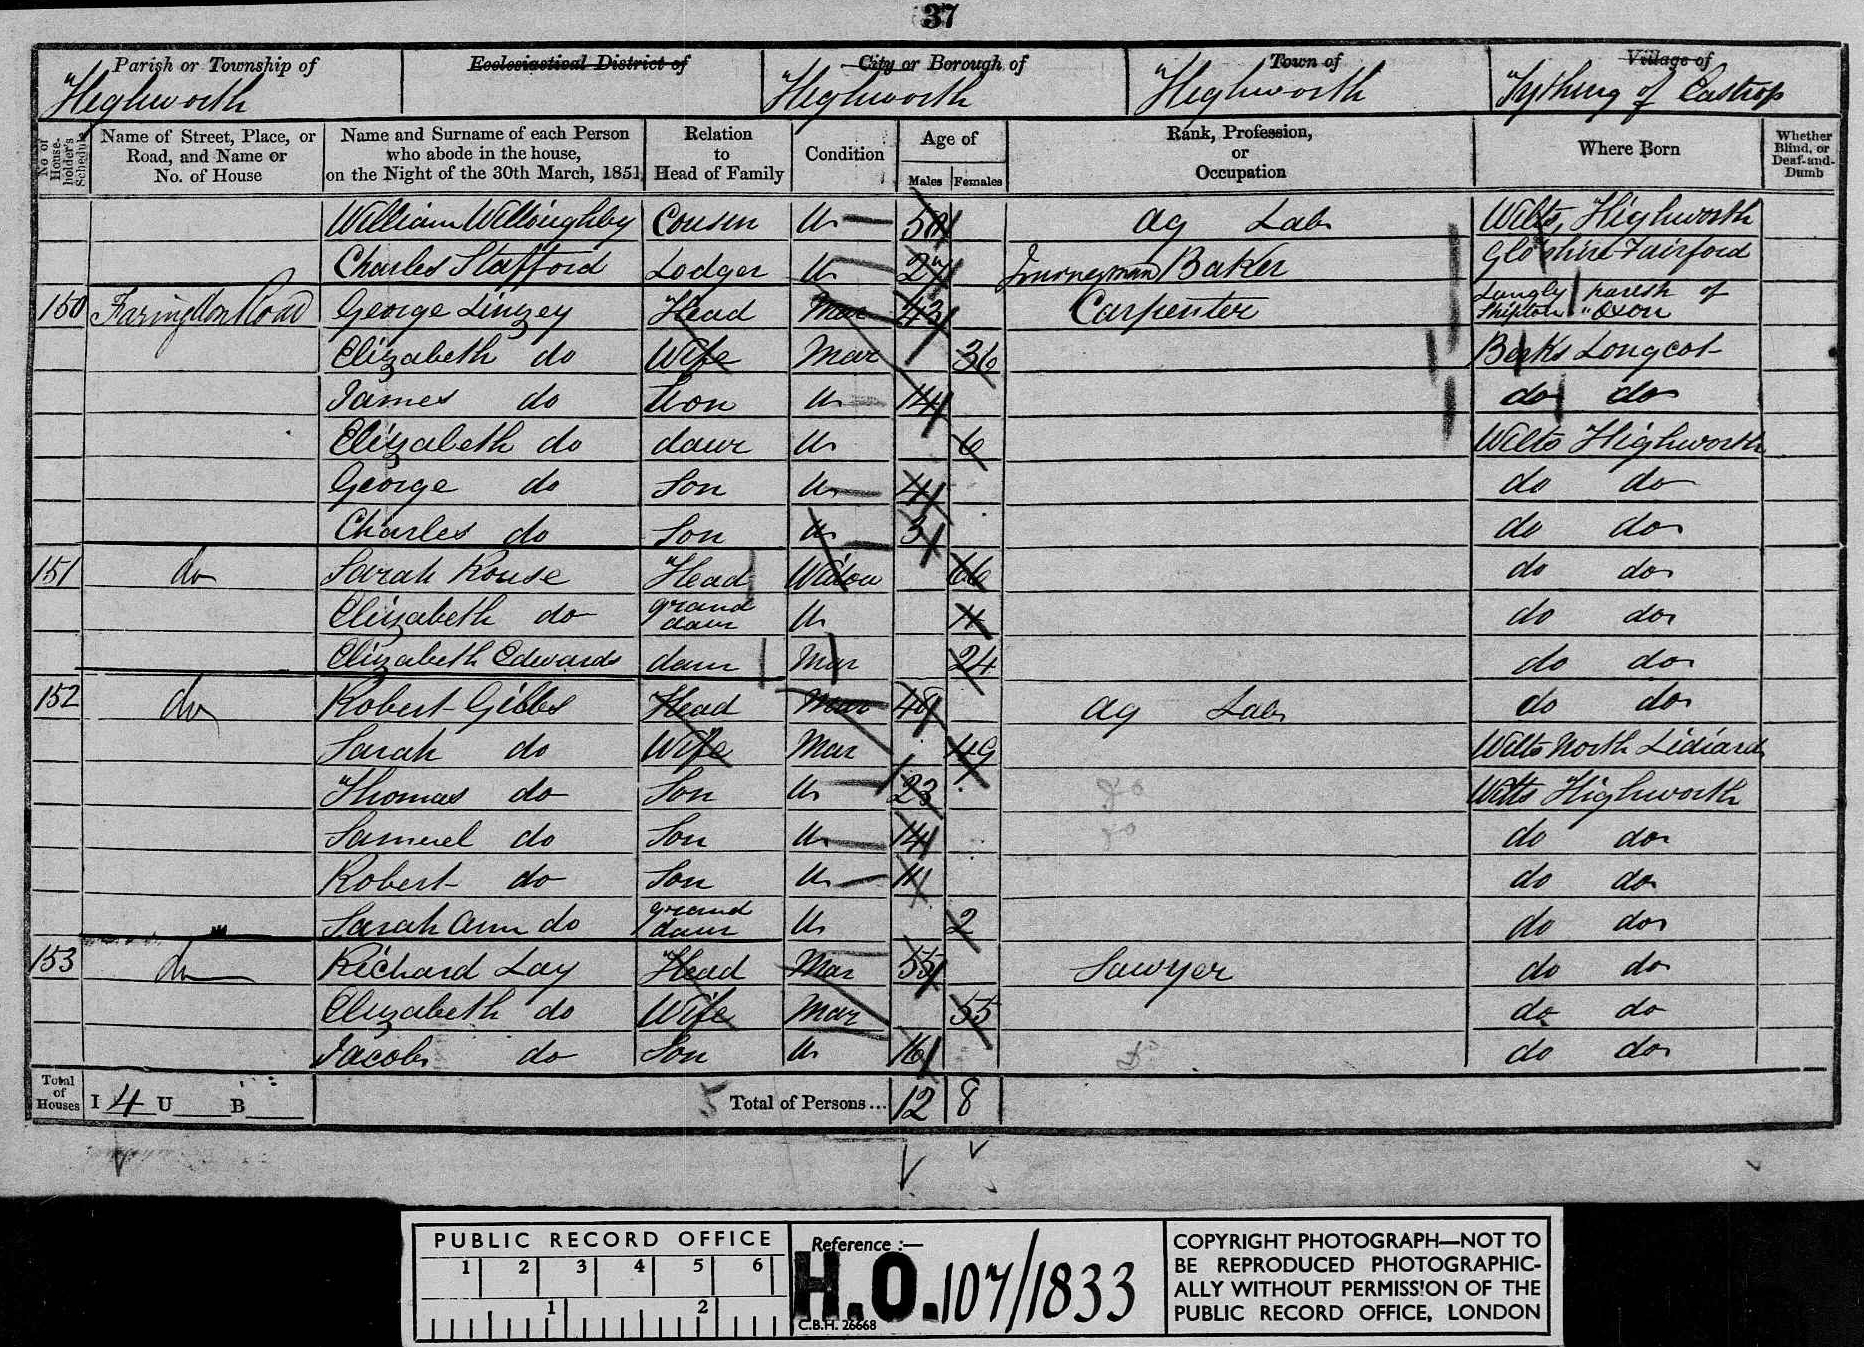 37
Parish or Township of Ecclesiastical District of City or Borough of Town of Village of
Highworth Highworth Highworth Tything of Eastrop
No. of House-holder's Schedule Name of Street, Place, or Road, and Name or No. of House Name and Surname of each Person who abode in the house, on the Night of the 30th March, 1851 Relation to Head of Family Condition Age of Males Females Rank, Profession, or Occupation Where Born Whether Blind, or Deaf-and-Dumb
William Willoughby Cousin U Ag Lab Wilts, Highworth
Charles Stafford Lodger U 27 Journeyman Baker Glo'shire Fairford
150 Faringdon Road George Linzey Head Mar 43 Carpenter Langly parish of Shipton " Oxon
Elizabeth do Wife Mar 36 Berks Longcot
James do Son U 14 do do
Elizabeth do daur U 6 Wilts Highworth
George do Son U 4 do do
Charles do Son U 3 do do
151 do Sarah Rouse Head Widow 66 do do
Elizabeth do grand daur U 4 do do
Elizabeth Edwards daur Mar 24 do do
152 do Robert Gibbs Head Mar 49 Ag Lab do do
Sarah do Wife Mar 49 Wilts North Lidiard
Thomas do Son U 23 do Wilts Highworth
Samuel do Son U 14 do do do
Robert do Son U 11 do do
Sarah Ann do grand daur U 2 do do
153 do Richard Lay Head Mar 55 Sawyer do do
Elizabeth do Wife Mar 55 do do
Jacob do Son U 16 do do do
Total of Houses I 4 U B 5 Total of Persons... 12 8
PUBLIC RECORD OFFICE
1 2 3 4 5 6
1 2
Reference :—
H.O. 107/1833
C.B.H. 26668
COPYRIGHT PHOTOGRAPH—NOT TO
BE REPRODUCED PHOTOGRAPHIC-
ALLY WITHOUT PERMISSION OF THE
PUBLIC RECORD OFFICE, LONDON